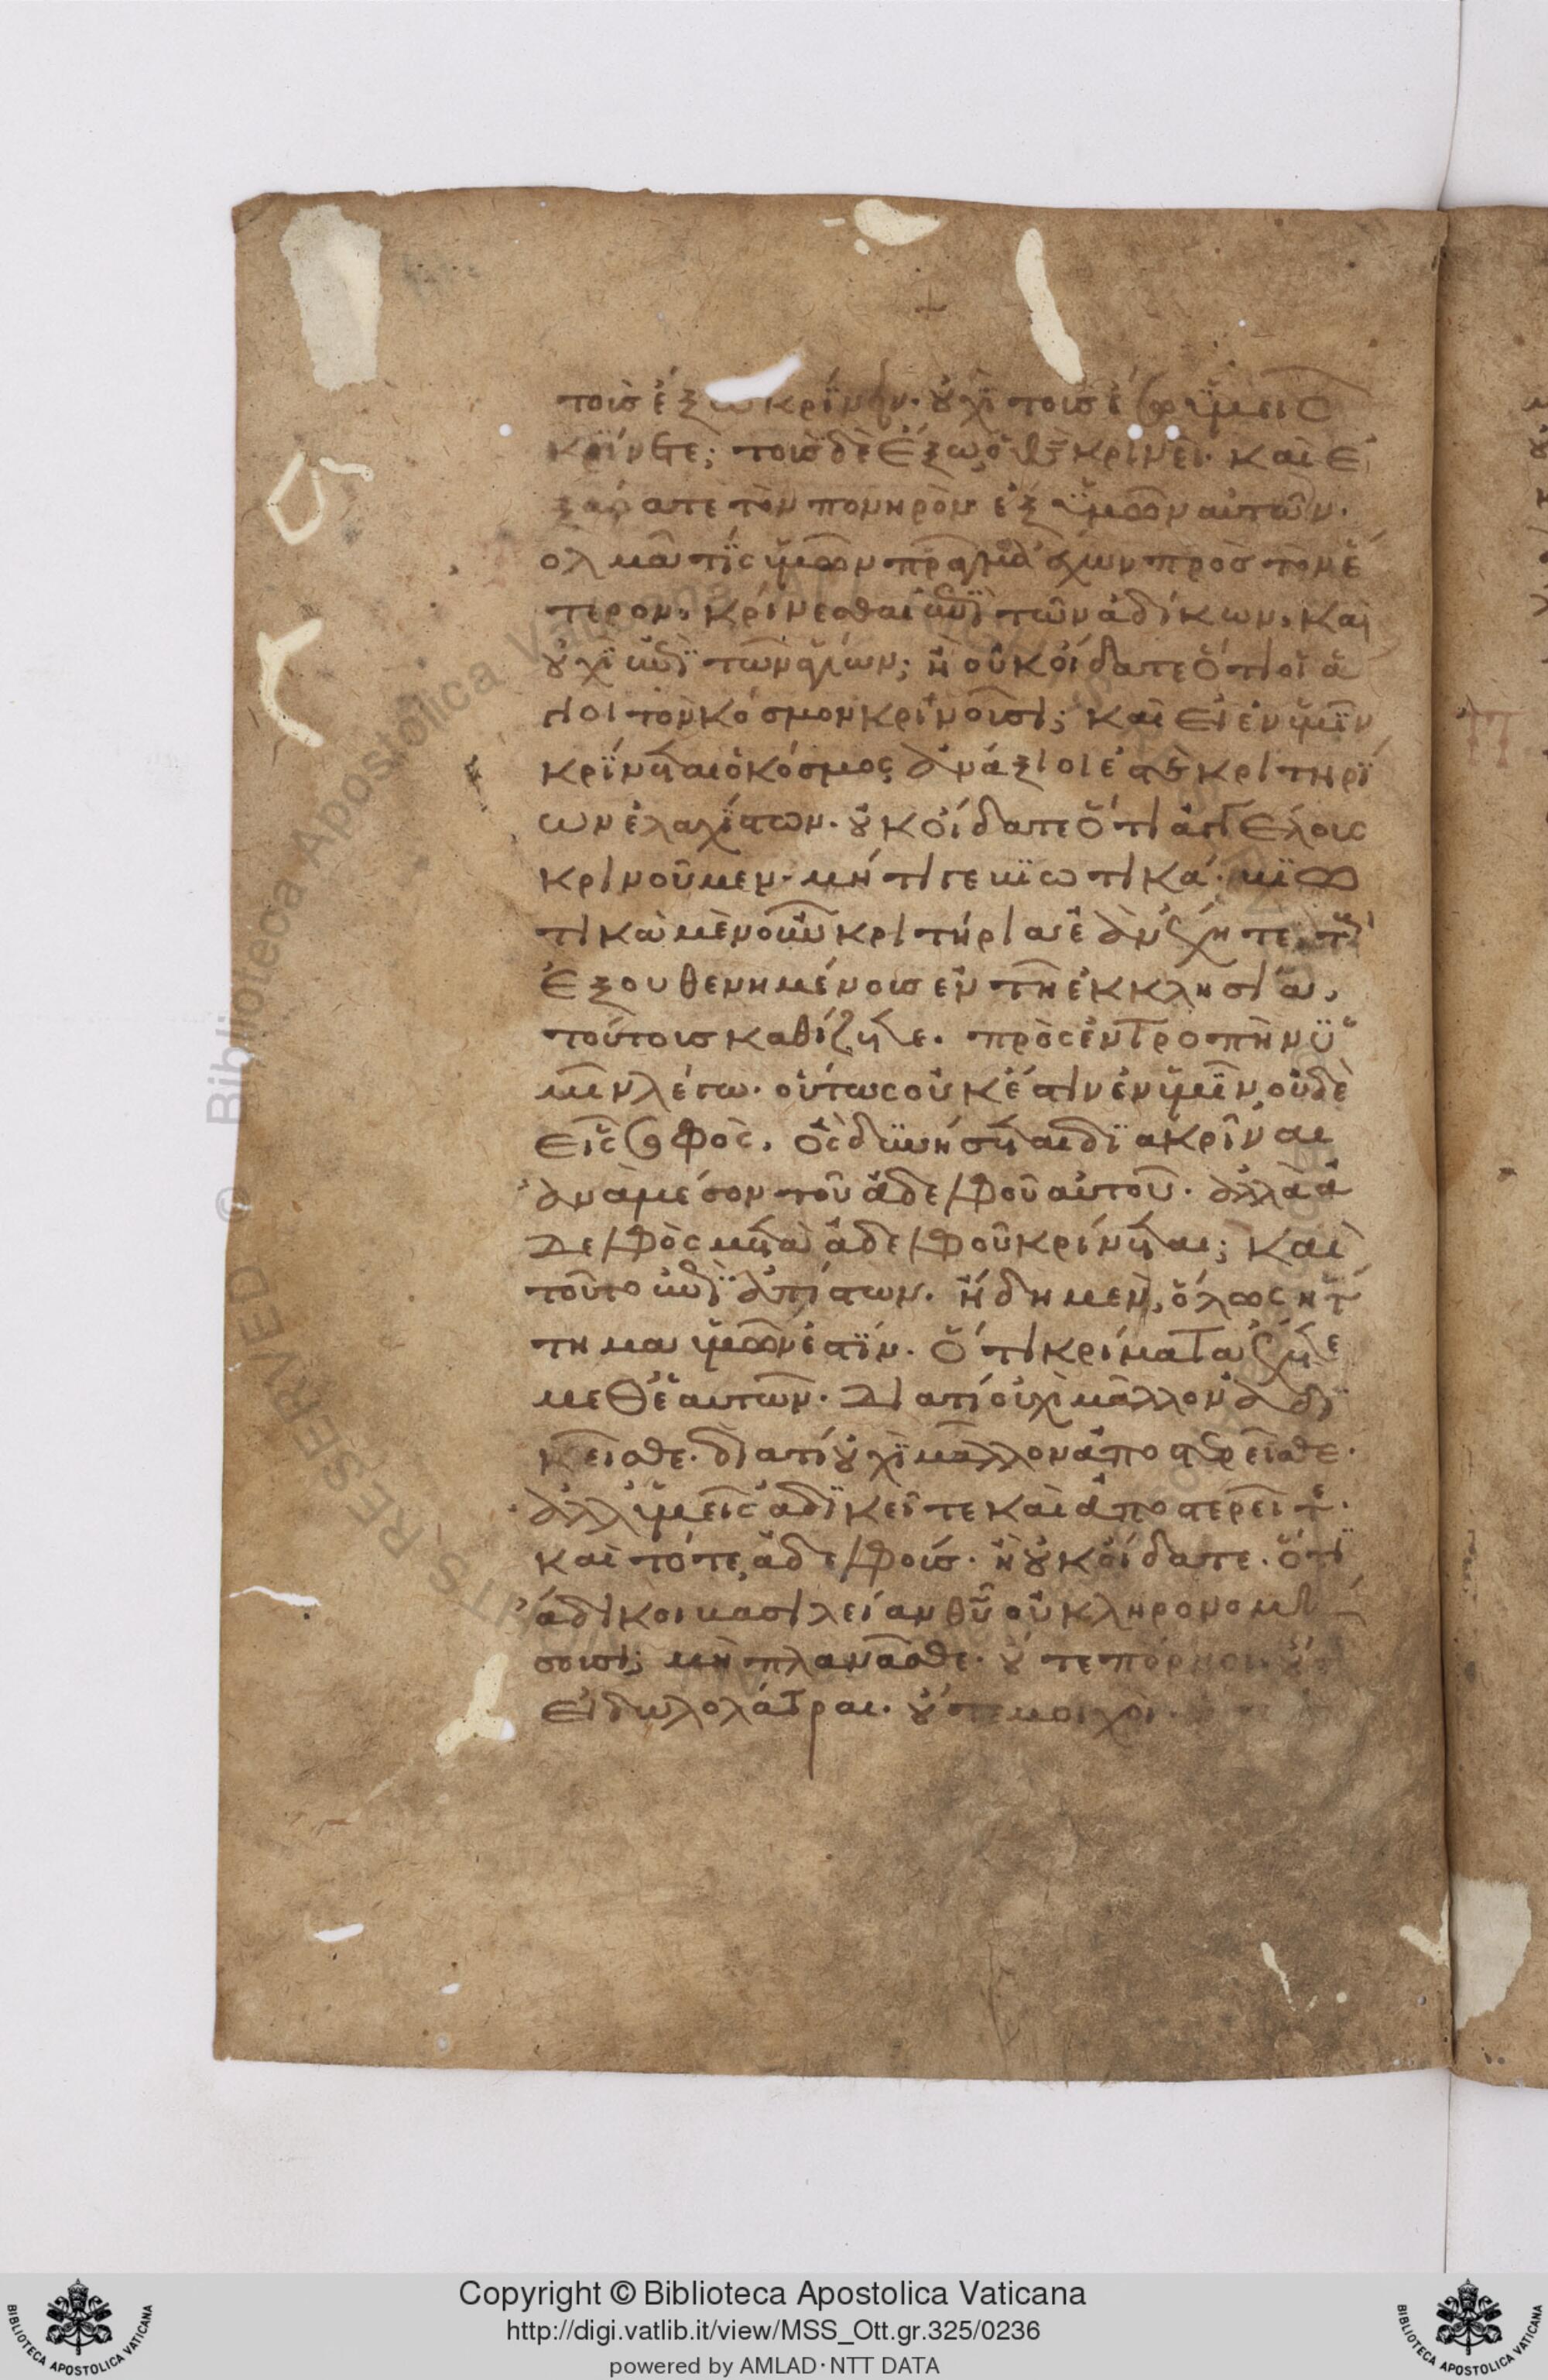 τοὺς ἔξω κρίνειν. οὐχὶ τοὺς ἔσω ὑμεῖς
κρίνετε; τοὺς δὲ ἔξω, ὁ θς κρινεῖ. καὶ ἐ
ξάρατε τὸν πονηρὸν ἐξ ὑμῶν αὐτῶν.
ολμᾶ τίς ὑμῶν πρᾶγμα ἔχων πρὸς τὸν ἕ
τερον, κρίνεσθαι ἐπὶ τῶν ἀδίκων, καὶ
οὐχὶ ἐπὶ τῶν ἁγίων; ἢ οὐκ οἴδατε ὅτι οἱ ἅ
γιοι τὸν κόσμον κρινοῦσι; καὶ εἰ ἐν ὑμῖν
κρίνεται ὁ κόσμος ἀνάξιοί ἐστε κριτηρί
ων ἐλαχίστων. οὐκ οἴδατε ὅτι ἀγγέλους
κρινοῦμεν. μήτιγε βιωτικά. βιω
τικὰ μὲν οὖν κριτήρια ἐὰν ἔχητε, τοὺς
ἐξουθενημένους ἐν τῇ ἐκκλησίᾳ,
τούτους καθίζετε. πρὸς ἐντροπὴν ὑ
μῖν λέγω. οὕτως οὐκ ἔστιν ἐν ὑμῖν, οὐδὲ
εἷς σοφὸς, ὃς δυνήσεται διακρῖναι
ἀνὰ μέσον τοῦ ἀδελφοῦ αὐτοῦ. ἀλλὰ ἀ
δελφὸς μετὰ ἀδελφοῦ κρίνεται; καὶ
τοῦτο ἐπὶ ἀπίστων. ἤδη μὲν, ὅλως ἥτ
τημα ὑμῶν ἐστίν. ὅτι κρίματα ἔχετε
μεθ ἑαυτῶν. διατί οὐχὶ μᾶλλον ἀδι
κεῖσθε. διατί οὐχὶ μᾶλλον ἀποστερεῖσθε.
ἀλλ ὑμεῖς ἀδικεῖτε καὶ ἀποστερεῖτε.
καὶ τότε, ἀδελφούς. ἢ οὐκ οἴδατε. ὅτι
ἄδικοι βασιλείαν θυ οὐ κληρονομή
σουσι; μὴ πλανᾶσθε. οὔτε πόρνοι. οὔτε
εἰδωλολάτραι. οὔτε μοιχοὶ.
Copyright © Biblioteca Apostolica Vaticana
http://digi.vatlib.it/view/MSS_Ott.gr.325/0236
powered by AMLAD·NTT DATA
BIBLIOTECA APOSTOLICA VATICANA
BIBLIOTECA APOSTOLICA VATICANA